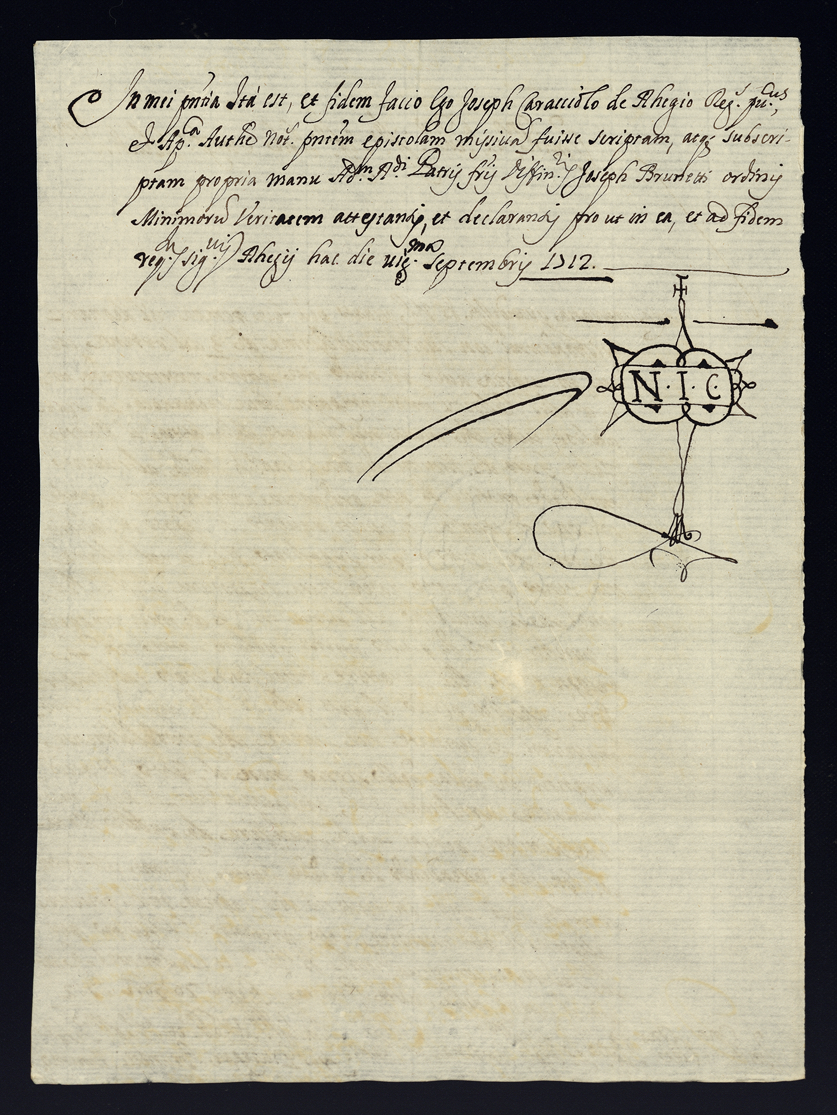 In mei pñtia Ita est, et fidem facio Ego Joseph Caracciolo de Rhegio Reg.s pu.cus,
et Ap.ca Auth.e Not.s pñtem epistolam missivã fuisse scriptam, atq; subscri-
ptam propria manu Ad.m R.di Patris fris Diffin.ris Joseph Brunetti ordinis
Minimorũ Veritatem attestandis, et declarandis prout in ea, et ad fidem
Rhegij hac die vig.ma septembris 1712.
N. I. C.